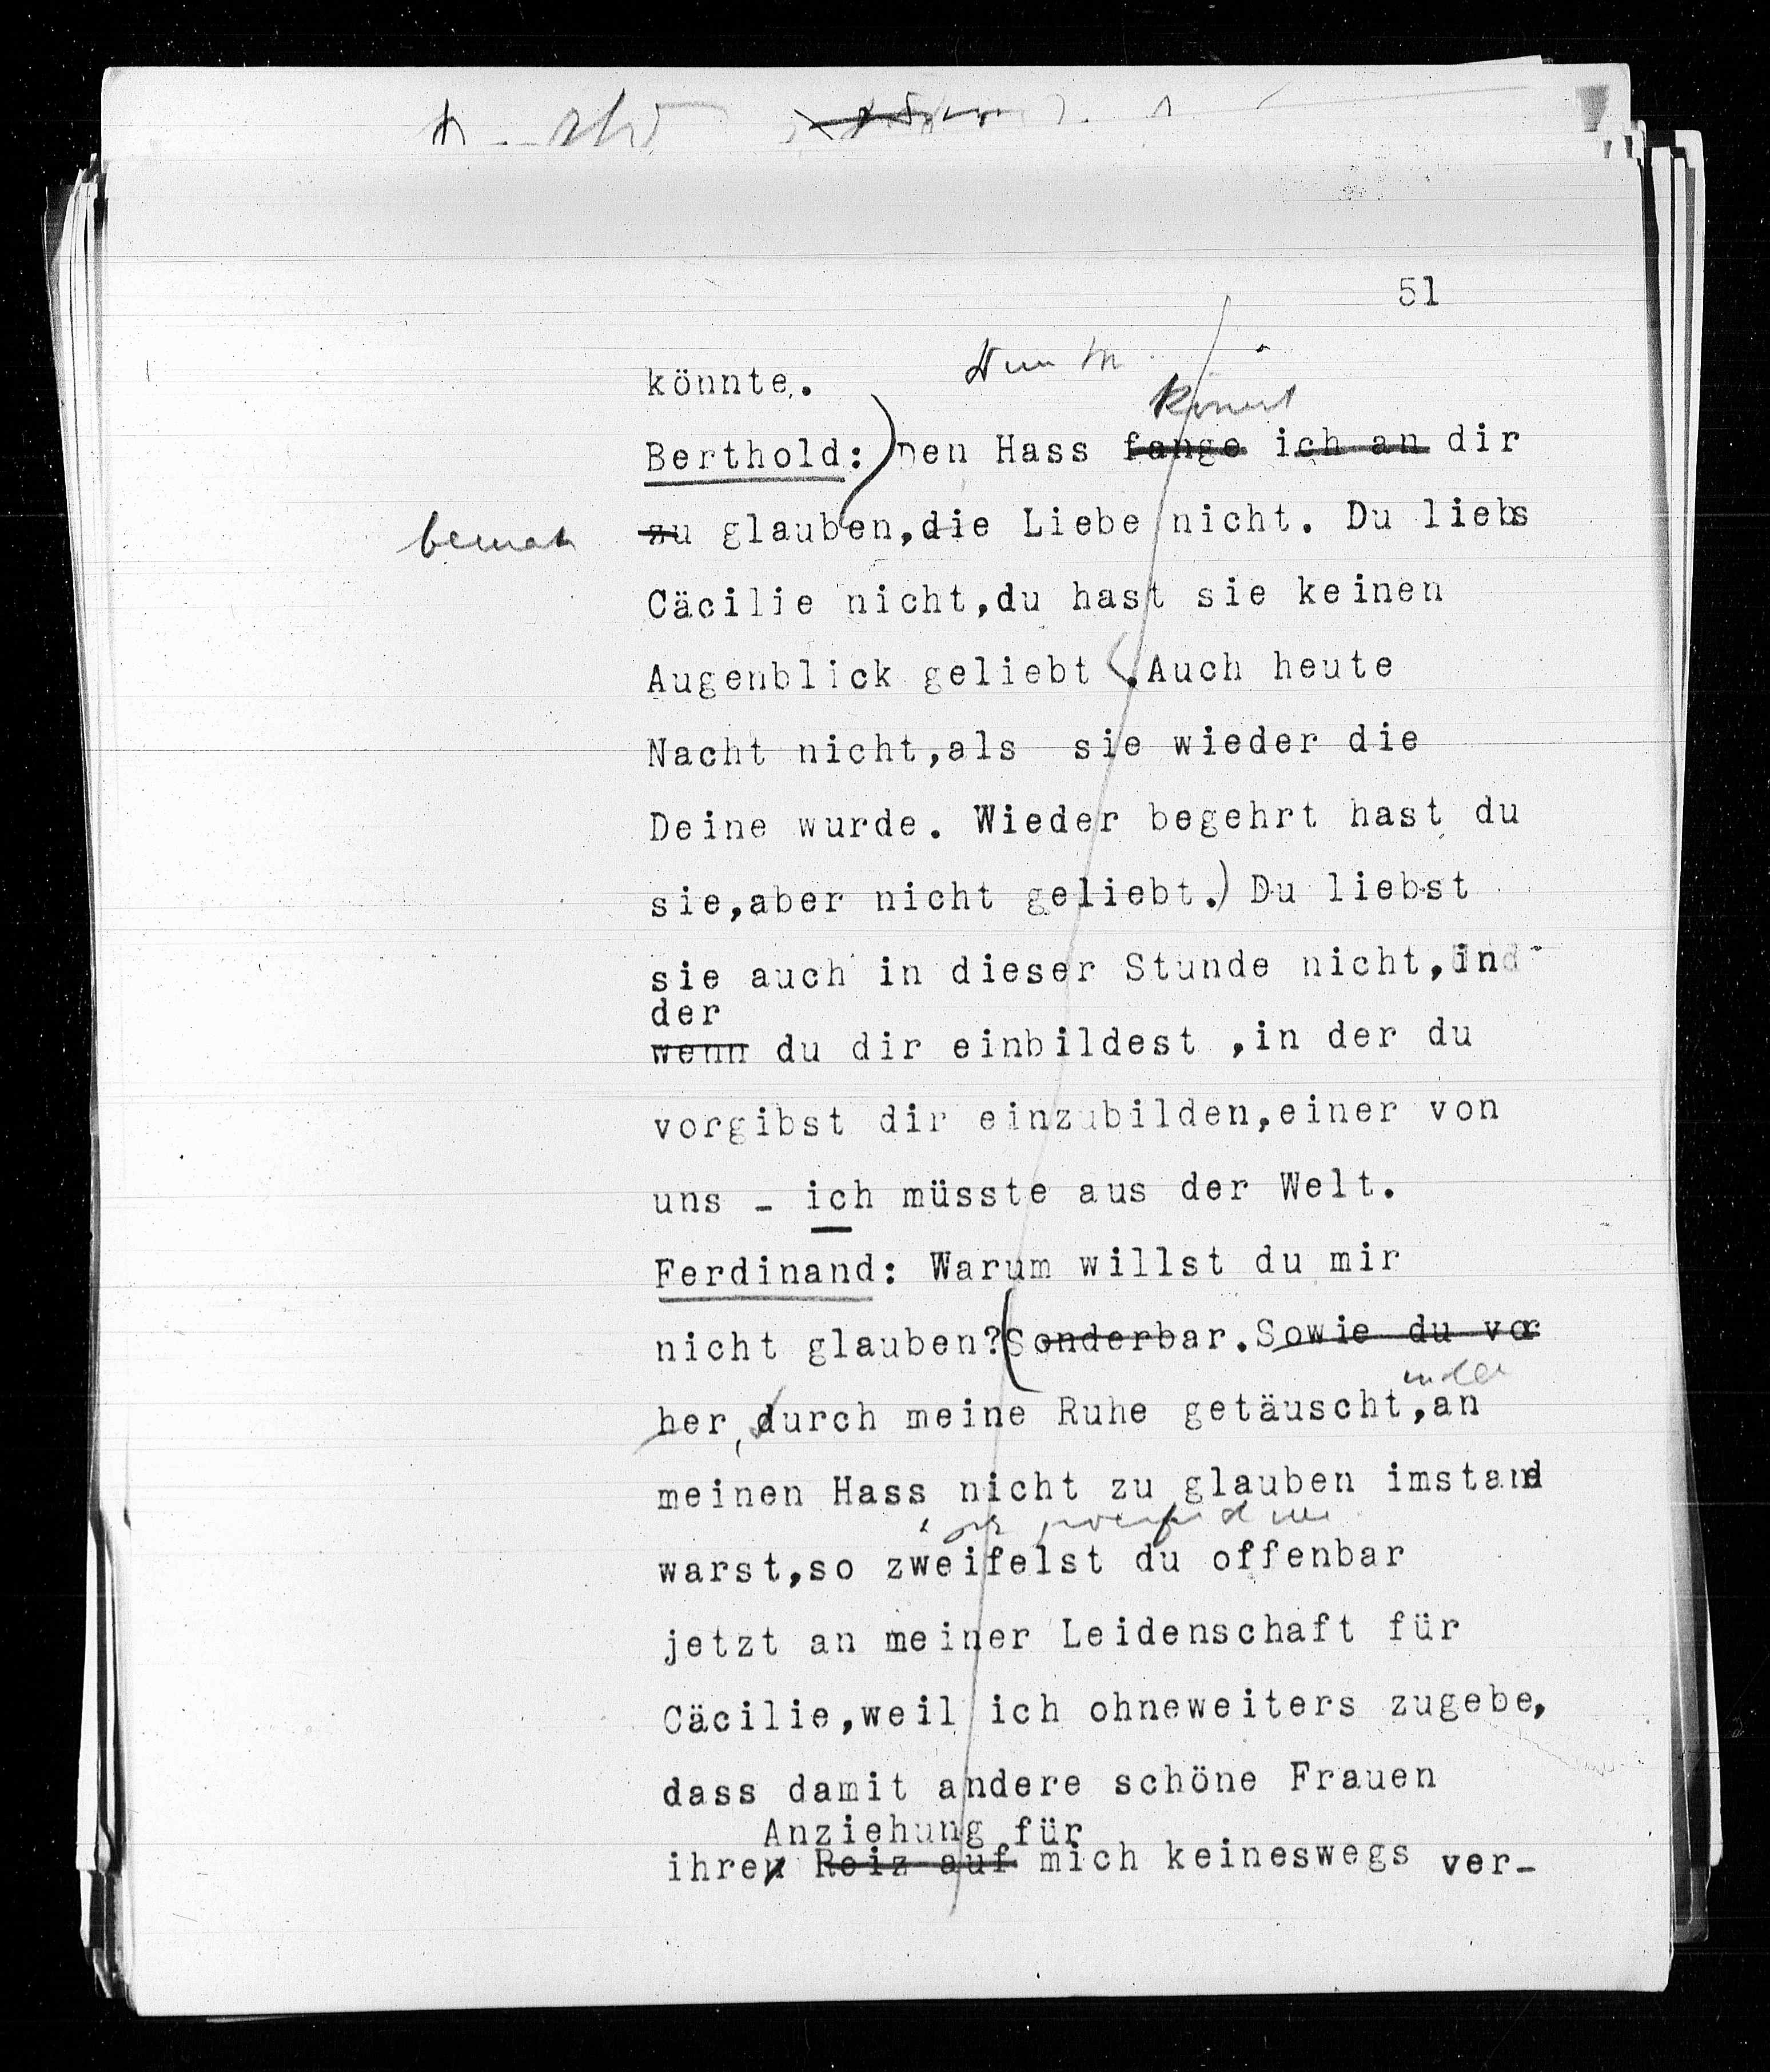 51
könnte.
könnt
Berthold: Den Hass fange ich an dir
zu glauben,die Liebe nicht. Du liebs
Cäcilie nicht,du hast sie keinen
Augenblick geliebt .Auch heute
Nacht nicht,als sie wieder die
Deine wurde. Wieder begehrt hast du
sie,aber nicht geliebt.) Du liebst
sie auch in dieser Stunde nicht,in
der
wenn du dir einbildest ,in der du
vorgibst dir einzubilden,einer von
uns - ich müsste aus der Welt.
Ferdinand: Warum willst du mir
nicht glauben?(Sonderbar.Sowie du vor
her, durch meine Ruhe getäuscht,an
meinen Hass nicht zu glauben imstand
warst,so zweifelst du offenbar
jetzt an meiner Leidenschaft für
Cäcilie,weil ich ohneweiters zugebe,
dass damit andere schöne Frauen
Anziehung für
ihren Reiz auf mich keineswegs ver-